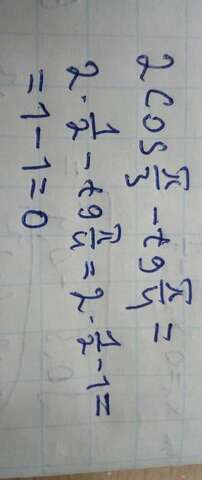 2 cos π/3 - tg π/4 =
2 · 1/2 - tg π/4 = 2 · 1/2 - 1 =
= 1 - 1 = 0